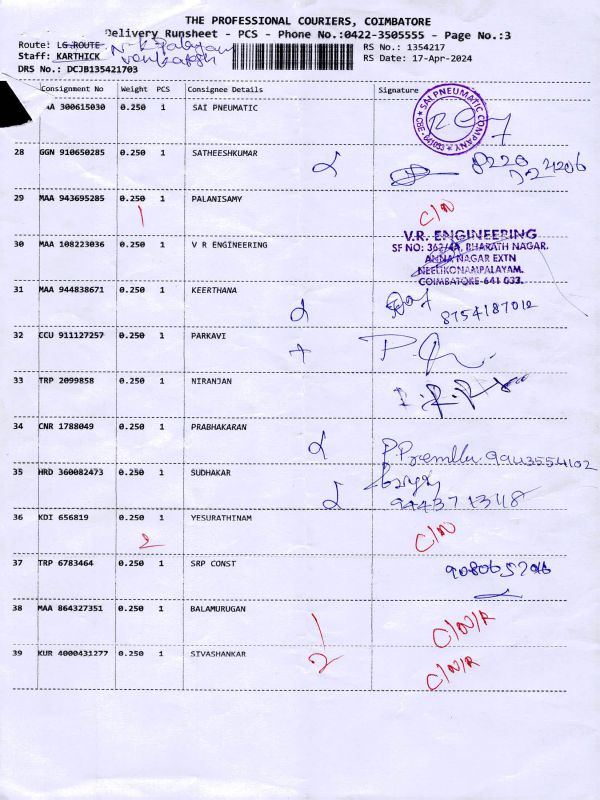 THE PROFESSIONAL COURIERS, COIMBATORE
Delivery Runsheet - PCS - Phone No.:0422-3505555 - Page No.:3
Route: LG.ROUTE N-K Palayam
Staff: KARTHICK
RS No.: 1354217
RS Date: 17-Apr-2024
DRS No.: DCJB135421703
Consignment No Weight PCS Consignee Details Signature
AA 300615030 0.250 1 SAI PNEUMATIC
SAI PNEUMATIC COMPANY
28 GGN 910650285 0.250 1 SATHEESHKUMAR
29 MAA 943695285 0.250 1 PALANISAMY C/N
1
30 MAA 108223036 0.250 1 V R ENGINEERING
V.R. ENGINEERING
SF NO: 362/4A, BHARATH NAGAR.
ANNA NAGAR EXTN
NEELIKONAMPALAYAM.
COIMBATORE-641 033.
31 MAA 944838671 0.250 1 KEERTHANA
8754187012
32 CCU 911127257 0.250 1 PARKAVI
33 TRP 2099858 0.250 1 NIRANJAN
34 CNR 1788049 0.250 1 PRABHAKARAN
9943554102
35 HRD 360082473 0.250 1 SUDHAKAR
36 KDI 656819 0.250 1 YESURATHINAM C/N
2
37 TRP 6783464 0.250 1 SRP CONST
38 MAA 864327351 0.250 1 BALAMURUGAN 1 C/N/R
39 KUR 4000431277 0.250 1 SIVASHANKAR 2 C/N/R